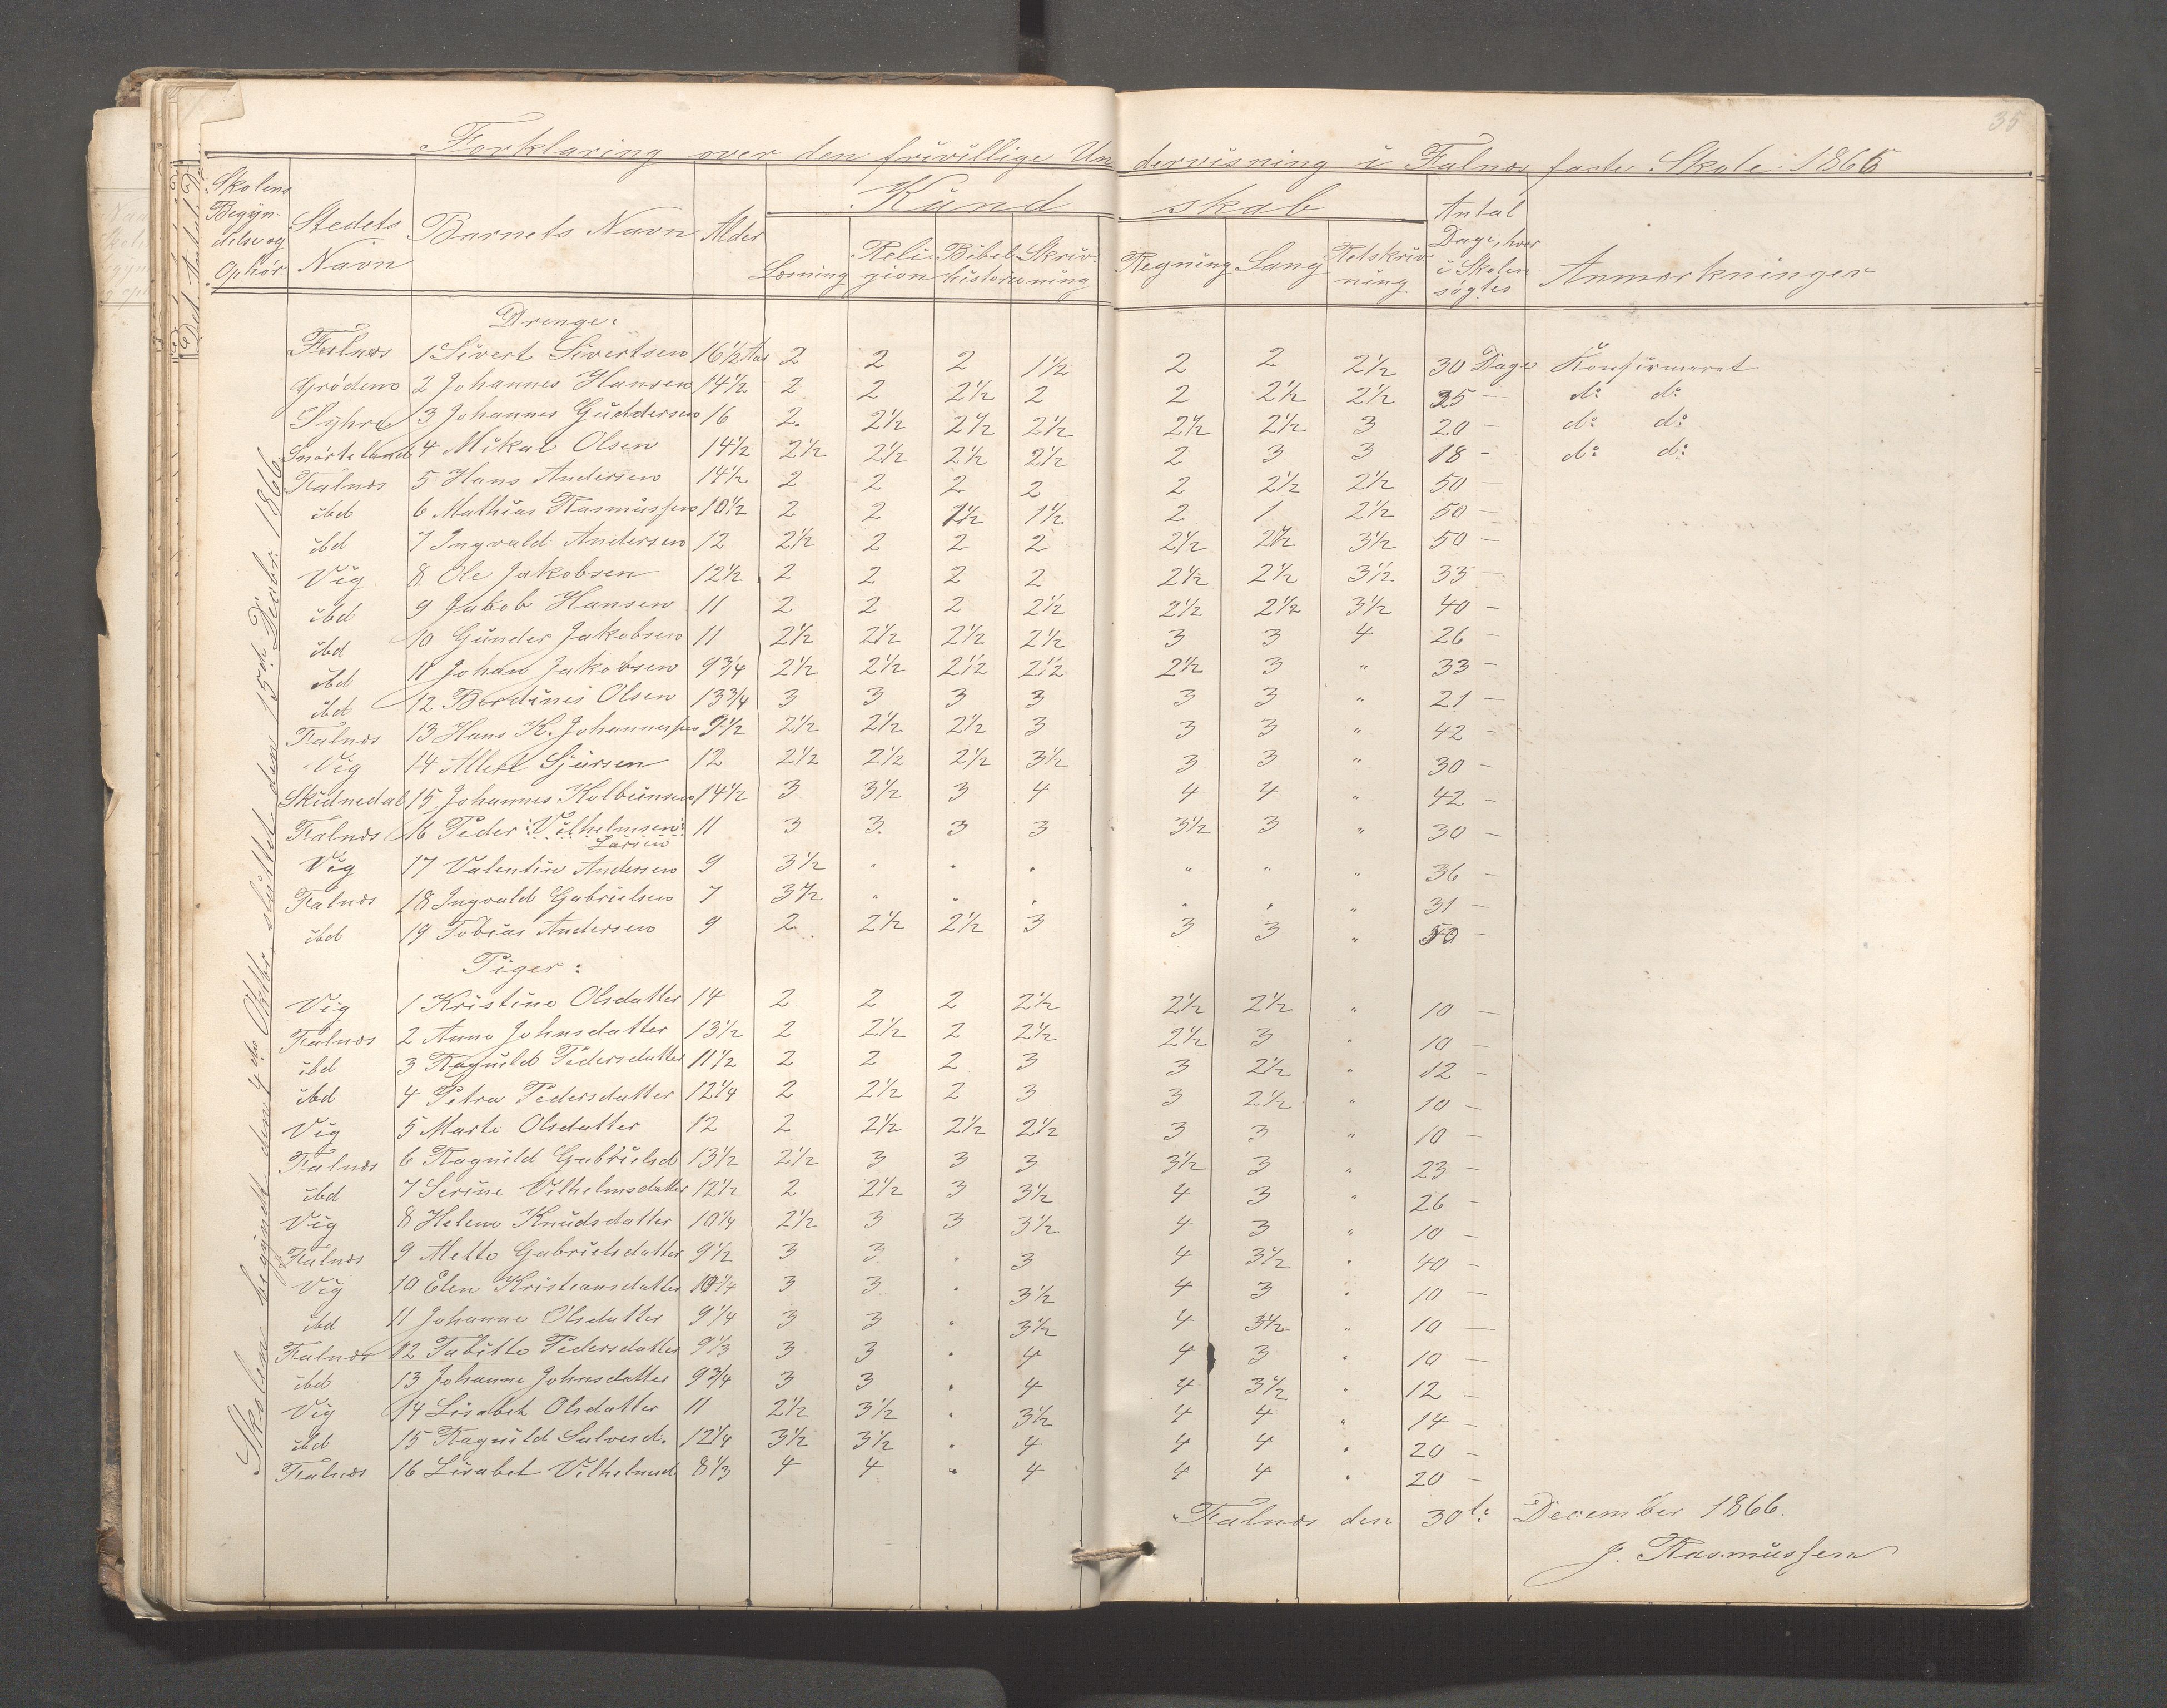 35
Forklaring over den frivillige Undervisning i Falnæs faste Skole 1866
Skolens Begyndelse og Ophør. | Stedets Navn | Barnets Navn | Alder | Kundskab | Antal Dage, hvor i Skolen søgtes | Anmærkninger
Læsning | Religion | Bibelhistorie | Skrivning | Regning | Sang | Retskrivning
Skolen begyndt den 4de Oktbr, sluttet den 15de Decbr. 1866
Drenge:
Falnæs 1 Sivert Sivertsen 16½ Aar 2 2 2 1½ 2 2 2½ 30 Dage Konfirmeret
Grødem 2 Johannes Hansen 14½ 2 2 2½ 2 2 2½ 2½ 25 — do do
3 Johannes Guddersen 16 2. 2½ 2½ 2½ 2½ 2½ 3 20 — do do
Snørteland 4 Mikal Olsen 14½ 2½ 2½ 2½ 2½ 2 3 3 18 - do do
Falnæs 5 Hans Andersen 14½ 2 2 2 2 2 2½ 2½ 50 —
ibd 6 Mathias Rasmussen 10½ 2 2 1½ 1½ 2 1 2½ 50 —
ibd 7 Ingvald Andersen 12 2½ 2 2 2 2½ 2½ 3½ 50 —
Vig 8 Ole Jakobsen 12½ 2 2 2 2 2½ 2½ 3½ 33 —
ibd 9 Jakob Hansen 11 2 2 2 2½ 2½ 2½ 3½ 40 —
ibd 10 Gunder Jakobsen 11 2½ 2½ 2½ 2½ 3 3 4 26 —
ibd 11 Johan Jakobsen 9¾ 2½ 2½ 2½ 2½ 2½ 3 " 33 —
ibd 12 Berdines Olsen 13¾ 3 3 3 3 3 3 " 21 —
Falnæs 13 Hans K. Johannessen 9½ 2½ 2½ 2½ 3 3 3 " 42 —
Vig 14 Allert Sjursen 12 2½ 2½ 2½ 3½ 3 3 " 30 —
Skidnedal 15 Johannes Kolbeinsen 14½ 3 3½ 3 4 4 4 " 42 —
Falnæs 16 Peder Vilhelmsen 11 3 3. 3 3 3½ 3 " 30 —
Larsen
Vig 17 Valentin Andersen 9 3½ " " " " " " 36 —
Falnæs 18 Ingvald Gabrielsen 7 3½ " " " " " " 31 —
ibd 19 Tobias Andersen 9 2 2½ 2½ 3 3 3 " 50 —
Piger:
Vig 1 Kristine Olsdatter 14 2 2 2 2½ 2½ 2½ " 10 —
Falnæs 2 Anne Johnsdatter 13½ 2 2½ 2 2½ 2½ 3 " 10 —
ibd 3 Ragnild Pedersdatter 11½ 2 2 2 3 3 2½ " 12 —
ibd 4 Petra Pedersdatter 12¼ 2 2½ 2 3 3 2½ " 10 —
Vig 5 Marte Olsdatter 12 2 2½ 2½ 2½ 3 3 " 10 —
Falnæs 6 Ragnild Gabrielsd 13½ 2½ 3 3 3 3½ 3 " 23 —
ibd 7 Serine Vilhelmsdatter 12½ 2 2½ 3 3½ 4 3 " 26 —
Vig 8 Helene Knudsdatter 10¼ 2½ 3 3 3½ 4 3 " 10 —
Falnæs 9 Mette Gabrielsdatter 9½ 3 3 " 3 4 3½ " 40 —
Vig 10 Elen Kristiansdatter 10¼ 3 3 " 3½ 4 3 " 10 —
ibd 11 Johanne Olsdatter 9¼ 3 3 " 3½ 4 3½ " 10 —
Falnæs 12 Tabitte Pedersdatter 9⅓ 3 3 " 4 4 3 " 10 —
ibd 13 Johanne Johnsdatter 9¾ 3 3 " 4 4 3½ " 12 —
Vig 14 Lisabet Olsdatter 11 2½ 3½ " 3½ 4 4 " 14 —
ibd 15 Ragnild Salvesd. 12¼ 3½ 3½ " 4 4 4 " 20 —
Falnæs 16 Lisabet Vilhelmsd 8⅓ 4 4 " 4 4 4 " 20 —
Falnæs den 30te December 1866.
J. Rasmussen